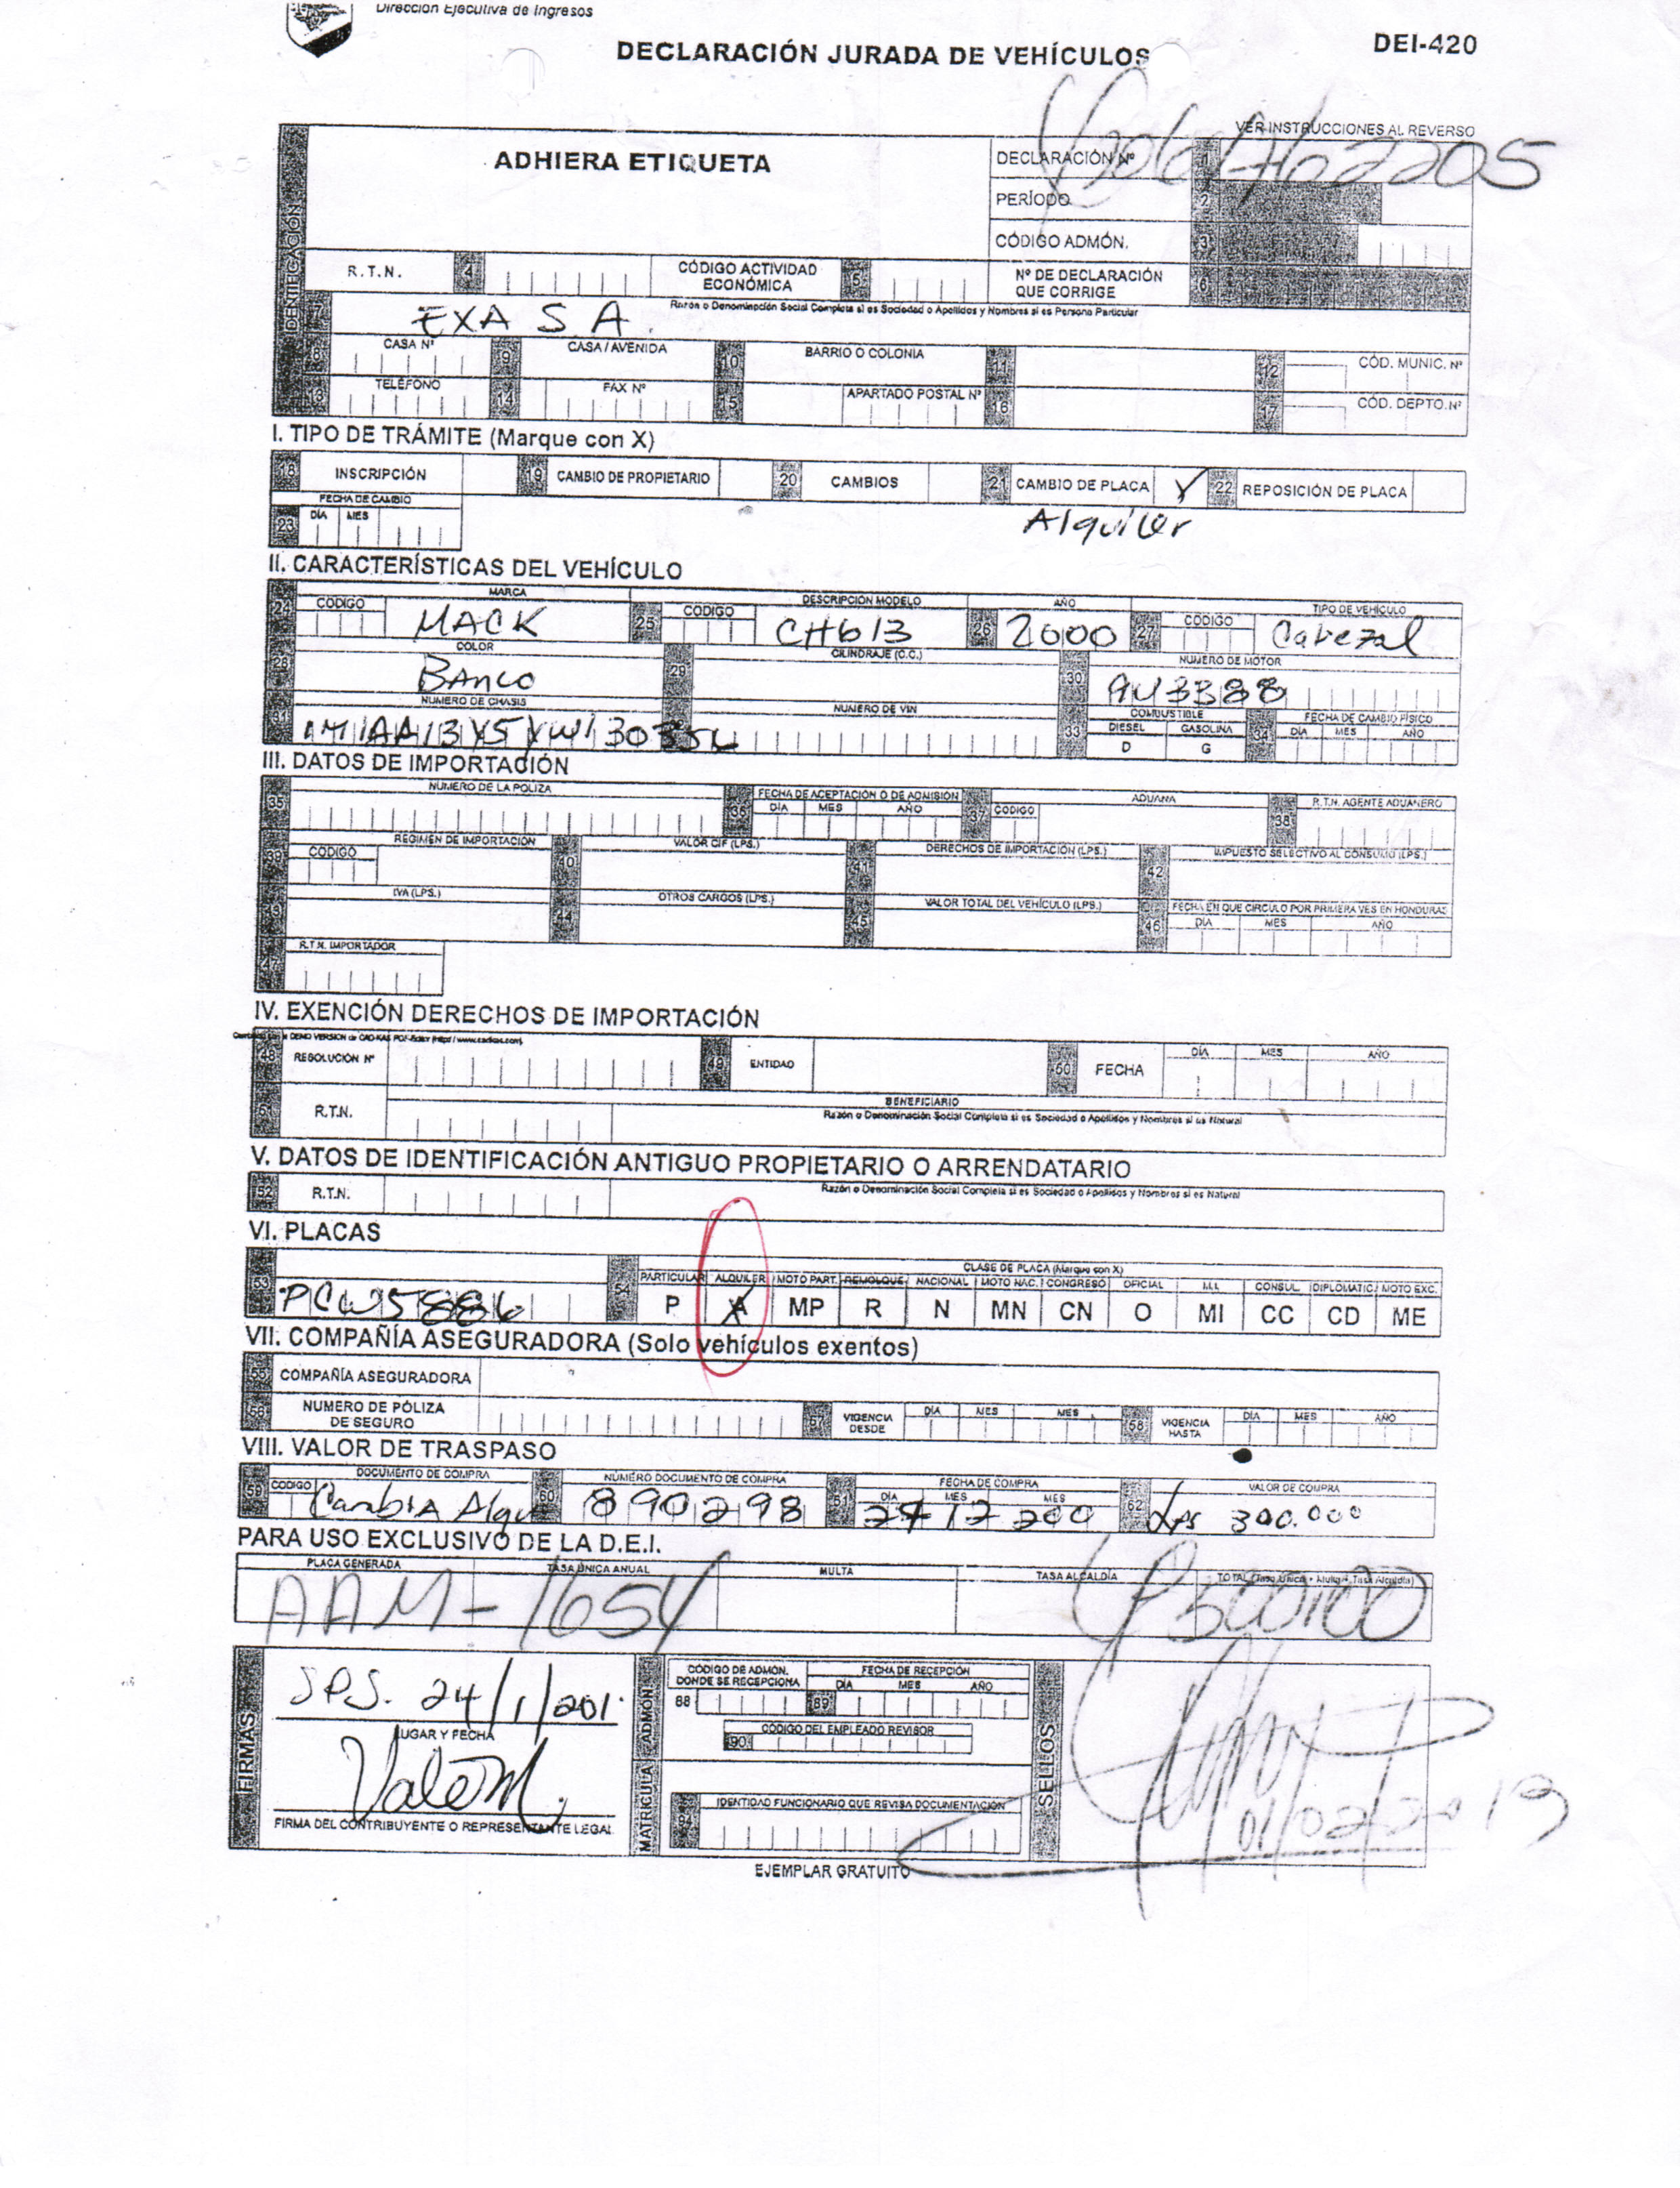 Dirección Ejecutiva de Ingresos
DECLARACIÓN JURADA DE VEHÍCULOS
DEI-420
VER INSTRUCCIONES AL REVERSO
IDENTIFICACIÓN
ADHIERA ETIQUETA
DECLARACIÓN Nº 1
PERÍODO 2
CÓDIGO ADMÓN. 3
R.T.N. 4 CÓDIGO ACTIVIDAD ECONÓMICA 5 Nº DE DECLARACIÓN QUE CORRIGE 6
7 Razón o Denominación Social Completa si es Sociedad o Apellidos y Nombres si es Persona Particular
EXA S A.
8 CASA Nº 9 CASA / AVENIDA 10 BARRIO O COLONIA 11 12 CÓD. MUNIC. Nº
13 TELÉFONO 14 FAX Nº 15 APARTADO POSTAL Nº 16 17 CÓD. DEPTO. Nº
I. TIPO DE TRÁMITE (Marque con X)
18 INSCRIPCIÓN 19 CAMBIO DE PROPIETARIO 20 CAMBIOS 21 CAMBIO DE PLACA 22 REPOSICIÓN DE PLACA
FECHA DE CAMBIO
23 DÍA MES
Alquiler
II. CARACTERÍSTICAS DEL VEHÍCULO
MARCA DESCRIPCIÓN MODELO AÑO TIPO DE VEHÍCULO
24 CÓDIGO MACK 25 CÓDIGO CH613 26 2000 27 CÓDIGO Cabezal
COLOR CILINDRAJE (C.C.) NUMERO DE MOTOR
28 Banco 29 30
NUMERO DE CHASIS NUMERO DE VIN COMBUSTIBLE FECHA DE CAMBIO FÍSICO
31 33 DIESEL GASOLINA 34 DÍA MES AÑO
D G
III. DATOS DE IMPORTACIÓN
35 NUMERO DE LA POLIZA 36 FECHA DE ACEPTACIÓN O DE ADMISIÓN 37 ADUANA 38 R.T.N. AGENTE ADUANERO
DÍA MES AÑO CÓDIGO
39 REGIMEN DE IMPORTACIÓN 40 VALOR CIF (LPS.) 41 DERECHOS DE IMPORTACIÓN (LPS.) 42 IMPUESTO SELECTIVO AL CONSUMO (LPS.)
CÓDIGO
43 IVA (LPS.) 44 OTROS CARGOS (LPS.) 45 VALOR TOTAL DEL VEHÍCULO (LPS.) 46 FECHA EN QUE CIRCULO POR PRIMERA VES EN HONDURAS
DÍA MES AÑO
47 R.T.N. IMPORTADOR
IV. EXENCIÓN DERECHOS DE IMPORTACIÓN
48 RESOLUCIÓN Nº 49 ENTIDAD 50 FECHA DÍA MES AÑO
BENEFICIARIO
51 R.T.N. Razón o Denominación Social Completa si es Sociedad o Apellidos y Nombres si es Natural
V. DATOS DE IDENTIFICACIÓN ANTIGUO PROPIETARIO O ARRENDATARIO
52 R.T.N. Razón o Denominación Social Completa si es Sociedad o Apellidos y Nombres si es Natural
VI. PLACAS
CLASE DE PLACA (Marque con X)
53 PCW5886 54 PARTICULAR ALQUILER MOTO PART. REMOLQUE NACIONAL MOTO NAC. CONGRESO OFICIAL M.I. CONSUL. DIPLOMATIC. MOTO EXC.
P A MP R N MN CN O MI CC CD ME
VII. COMPAÑÍA ASEGURADORA (Solo vehículos exentos)
55 COMPAÑÍA ASEGURADORA
56 NUMERO DE PÓLIZA DE SEGURO 57 VIGENCIA DESDE DÍA MES MES 58 VIGENCIA HASTA DÍA MES AÑO
VIII. VALOR DE TRASPASO
DOCUMENTO DE COMPRA NÚMERO DOCUMENTO DE COMPRA FECHA DE COMPRA VALOR DE COMPRA
59 CODIGO Cambia Alqu 60 890298 61 DÍA MES MES 62 Lps 300.000
PARA USO EXCLUSIVO DE LA D.E.I.
PLACA GENERADA TASA ÚNICA ANUAL MULTA TASA ALCALDÍA TOTAL (Tasa Única + Multa + Tasa Alcaldía)
AAM-1654
FIRMAS
S.P.S. 24/1/201
LUGAR Y FECHA
FIRMA DEL CONTRIBUYENTE O REPRESENTANTE LEGAL
MATRICULA ADMÓN
CÓDIGO DE ADMÓN. DONDE SE RECEPCIONA FECHA DE RECEPCIÓN
88 89 DÍA MES AÑO
CÓDIGO DEL EMPLEADO REVISOR
90
IDENTIDAD FUNCIONARIO QUE REVISA DOCUMENTACIÓN
SELLOS
01/02/2019
EJEMPLAR GRATUITO